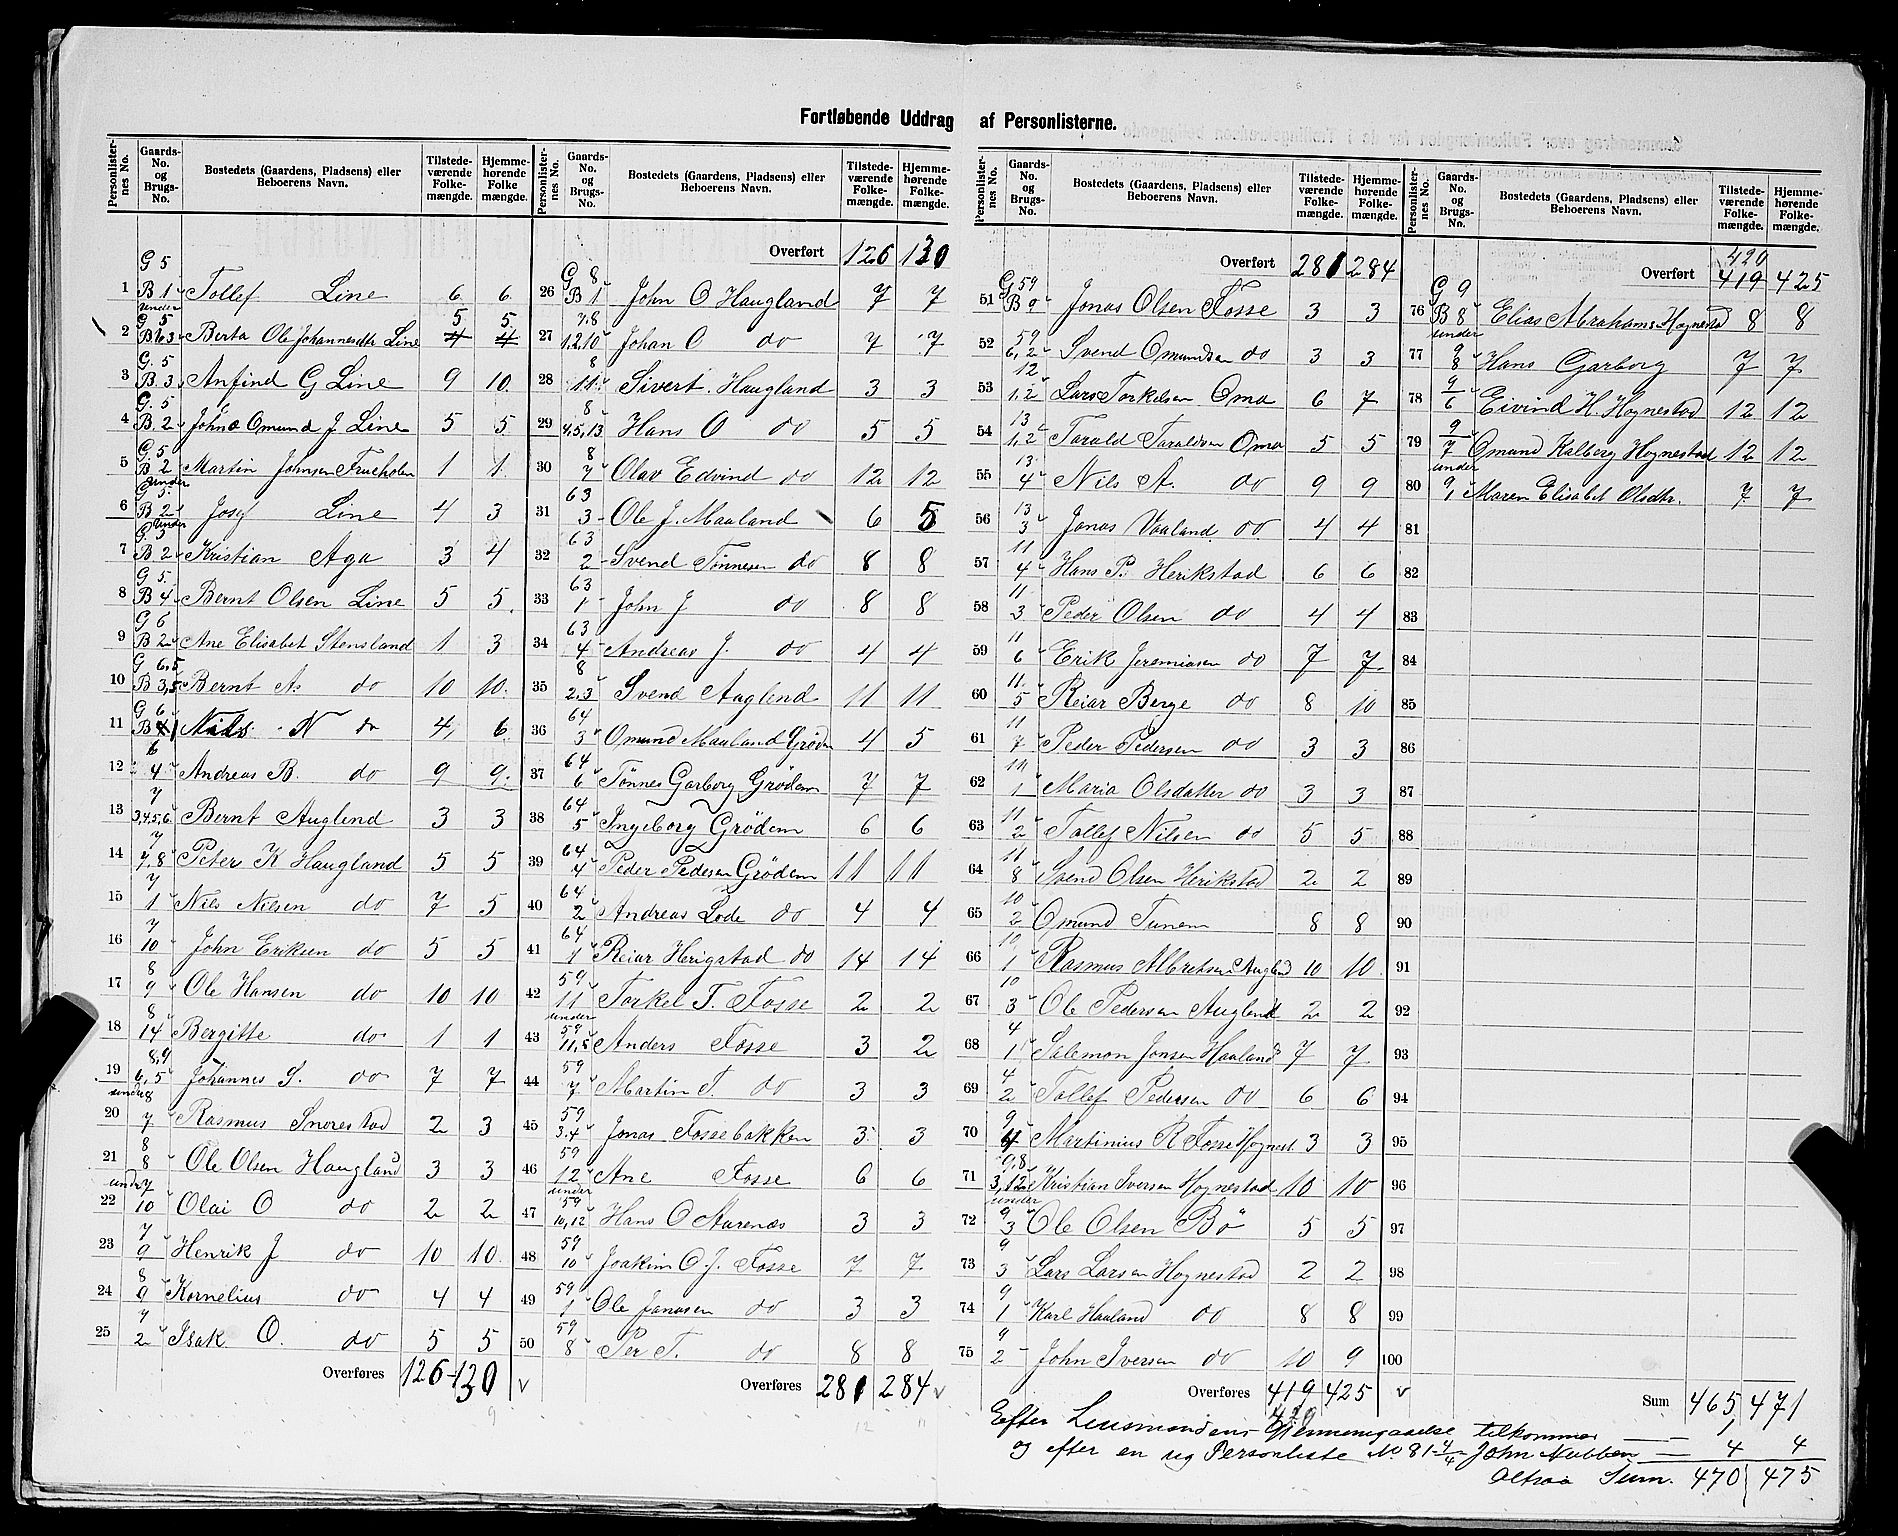 Fortløbende Uddrag af Personlisterne.
Personlister-nes No. | Gaards-No. og Brugs-No. | Bostedets (Gaardens, Pladsens) eller Beboerens Navn. | Tilstede-værende Folke-mængde. | Hjemme-hørende Folke mængde.
1 G 5 B 1 Tollef Line 6 6
2 under G. 5 B 1,3 Berta Ole Johannesdtr Line 5 5
3 G. 5 B. 3 Anfind G Line 9 10
4 G. 5 B. 2 Omund J. Line 5 5
5 G. 5 B. 2 Martin Johnsen 1 1
6 under G 5. B 2 Josef Line 4 3
7 under G 5 B 2 Kristian Aga 3 4
8 G 5. B 4 Bernt Olsen Line 5 5
9 G 6 B 2 Ane Elisabet Stensland 1 3
10 G 6,5 B 3,5 Bernt A. do 10 10
11 G 6 Nils N do 4 6
12 6 4 Andreas B. do 9 9
13 7 3,4,5,6 Bernt Auglend 3 3
14 7 7,8 Peter K Haugland 5 5
15 7 1 Nils Nilsen do 7 5
16 7 10 John Eriksen do 5 5
17 8 9 Ole Hansen do 10 10
18 8 14 Bergitte do 1 1
19 8,9 6,5 Johannes S. do 7 7
20 under 8 7 Rasmus Snorestad 2 3
21 8 8 Ole Olsen Haugland 3 3
22 under 7 10 Olai O do 2 2
23 7 9 Henrik J do 10 10
24 8 9 Kornelius do 4 4
25 7 2 Isak O. do 5 5
Overføres 126 130
Personlister-nes No. | Gaards-No. og Brugs-No. | Bostedets (Gaardens, Pladsens) eller Beboerens Navn. | Tilstede-værende Folke-mængde. | Hjemme-hørende Folke-mængde.
Overført 126 130
26 G 8 B 1 John O Haugland 7 7
27 7.8 1,2,10 Johan O do 7 7
28 8 11 Sivert Haugland 3 3
29 8 4,5,13 Hans O do 5 5
30 8 7 Olav Edvind do 12 12
31 63 3 Ole J. Maaland 6 5
32 63 2 Svend Tønnesen do 8 8
33 63 1 John J do 8 8
34 63 4 Andreas J. do 4 4
35 8 2,3 Svend Auglend 11 11
36 64 3 Omund Maaland Grødem 4 5
37 64 6 Tønnes Garborg Grødem 7 7
38 64 5 Ingeborg Grødem 6 6
39 64 4 Peder Pedesen Grødem 11 11
40 64 2 Andreas Lode do 4 4
41 64 1 Reiar Herigstad do 14 14
42 59 11 Torkel T. Fosse 2 2
43 under 59 11,5 Anders Fosse 3 2
44 59 7 Martin T. do 3 3
45 59 3.4 Jonas Fossebakken 3 3
46 59 12 Ane Fosse 6 6
47 under 59 10,12 Hans O Aarenæs 3 3
48 59 10 Joakim O. J. Fosse 7 7
49 59 1 Ole Janasen do 3 3
50 59 8 Per T. do 8 8
Overføres 281 284
Personlister-nes No. | Gaards-No. og Brugs-No. | Bostedets (Gaardens, Pladsens) eller Beboerens Navn. | Tilstede-værende Folke-mængde. | Hjemme-hørende Folke-mængde.
Overført 281 284
51 G 59 B 9 Jonas Olsen Fosse 3 3
52 59 6,2 Svend Omundsen do 3 3
53 12 1,2 Lars Torkelsen Oma 6 7
54 13 1,2 Tarald Taraldsen Oma 5 5
55 13 4 Nils A. do 9 9
56 13 3 Jonas Vaaland do 4 4
57 11 4 Hans P. Herikstad 6 6
58 11 3 Peder Olsen do 4 4
59 11 6 Erik Jeremiasen do 7 7
60 11 5 Reiar Berge do 8 10
61 11 7 Peder Pedersen do 3 3
62 11 1 Maria Olsdatter do 3 3
63 11 2 Tollef Nilsen do 5 5
64 11 8 Svend Olsen Herikstad 2 2
65 10 2 Omund Tunem 8 8
66 10 1 Rasmus Albretsen Auglend 10 10
67 10 3 Ole Pedersen Auglend 2 2
68 4 1 Salemon Jonsen Haaland 7 7
69 4 2 Tollef Pedersen do 6 6
70 9 4 Martinius R Fosse Hognest 3 3
71 9,8 3,12 Kristian Iversen Hognestad 10 10
72 under 9 3 Ole Olsen Bö 5 5
73 9 3 Lars Larsen Hognestad 2 2
74 9 1 Karl Haaland do 8 8
75 9 2 John Iversen do 10 9
Overføres 419 425
420
Personlister-nes No. | Gaards-No. og Brugs-No. | Bostedets (Gaardens, Pladsens) eller Beboerens Navn. | Tilstede-værende Folke-mængde. | Hjemme-hørende Folke-mængde.
420
Overført 419 425
76 G 9 B 8 Elias Abrahams Hognestad 8 8
77 under 9 8 Hans Garborg 7 7
78 9 6 Eivind H. Hognestad 12 12
79 9 7 Omund Kalberg Hognestad 12 12
80 under 9 1 Maren Elisabet Olsdtr. 7 7
81
82
83
84
85
86
87
88
89
90
91
92
93
94
95
96
97
98
99
100
Sum 465 471
Efter Lensmandens Gjennemgaaelse tilkommer 1
og efter en ny Personliste No 81 4/4 John Nubben 4 4
Altsaa Sum. 470 475